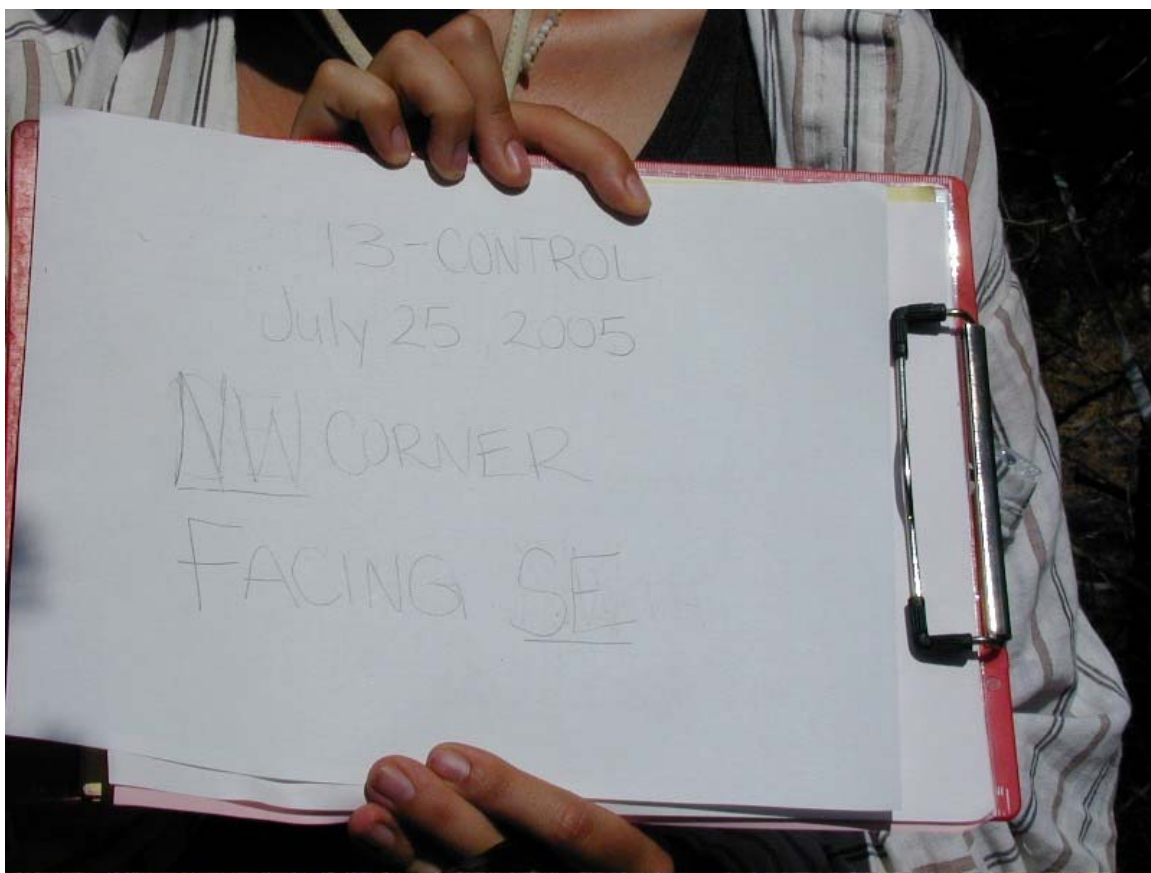 13-CONTROL
July 25 2005
NW CORNER
FACING SE